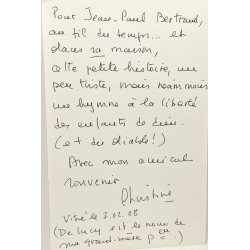 Pour Jean-Paul Bertrand,
au fil du temps... et
dans sa maison,
cette petite histoire, un
peu triste, mais néanmoins
un hymne à la liberté
des enfants de dieu.
(et du diable !)
Avec mon amical
souvenir
Christine
le 7.02.08
(De Lucy est le nom de
ma grand-mère